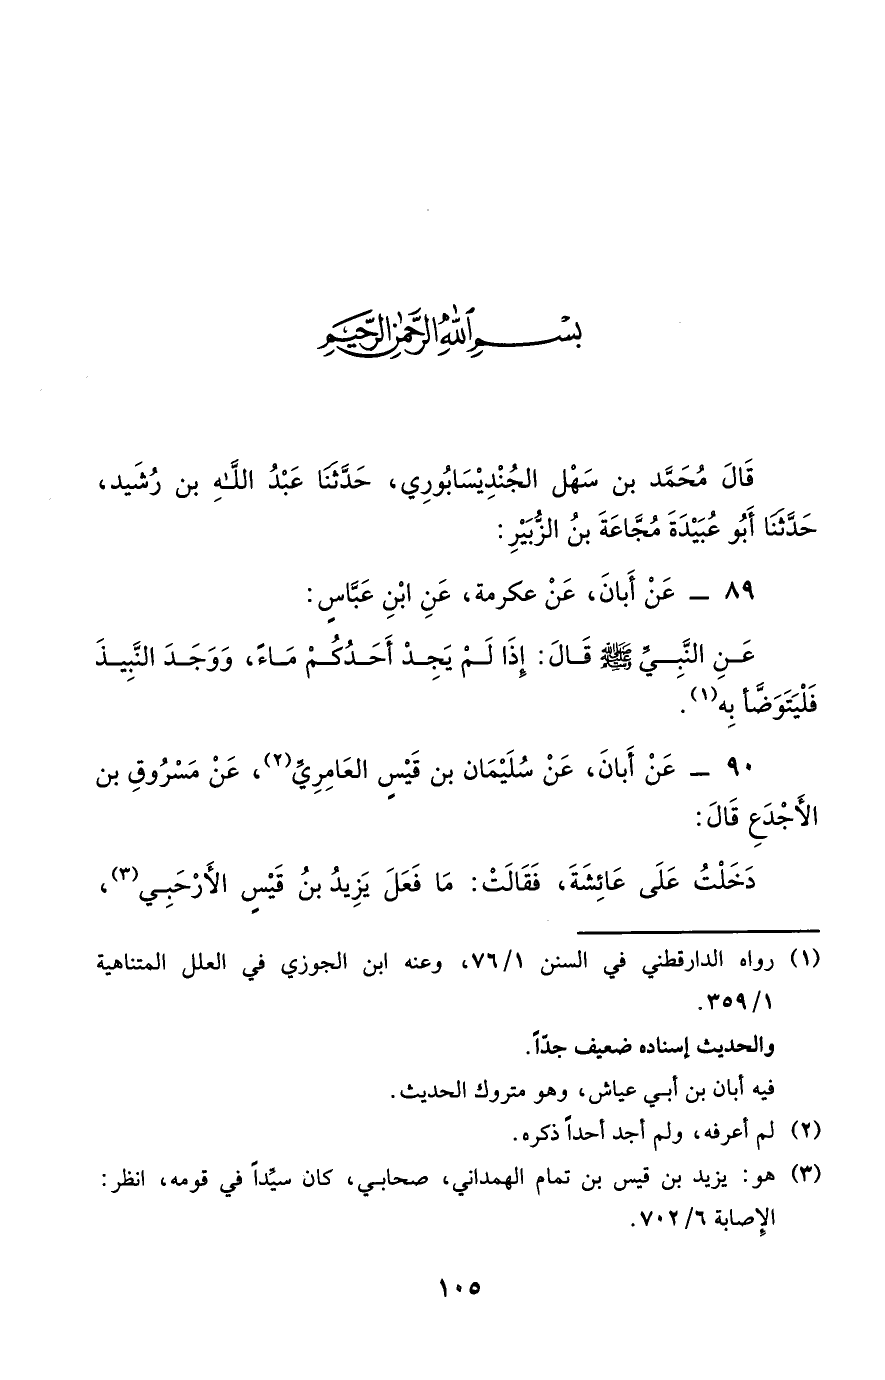 بسم الله الرحمن الرحيم
قَالَ مُحَمَّد بن سَهْل الجُنْدِيْسَابُوري، حَدَّثَنَا عَبْدُ اللَّهِ بن رُشَيد،
حَدَّثَنَا أَبُو عُبَيْدَةَ مُجَّاعَةَ بنُ الزُّبَيْرِ:
٨٩ ــ عَنْ أَبانَ، عَنْ عكرمة، عَنِ ابْنِ عَبَّاسٍ:
عَنِ النَّبِيِّ ﷺ قَالَ: إِذَا لَمْ يَجِدْ أَحَدُكُمْ مَاءً، وَوَجَدَ النَّبِيذَ
فَلْيَتَوَضَّأ بِه(١).
٩٠ ــ عَنْ أَبانَ، عَنْ سُلَيْمَان بن قَيْسٍ العَامِرِيِّ(٢)، عَنْ مَسْرُوقِ بن
الأَجْدَعِ قَالَ:
دَخَلْتُ عَلَى عَائِشَةَ، فَقَالَتْ: مَا فَعَلَ يَزِيدُ بنُ قَيْسٍ الأَرْحَبِي(٣)،
(١) رواه الدارقطني في السنن ٧٦/١، وعنه ابن الجوزي في العلل المتناهية
٣٥٩/١.
والحديث إسناده ضعيف جدّاً.
فيه أبان بن أبي عياش، وهو متروك الحديث.
(٢) لم أعرفه، ولم أجد أحداً ذكره.
(٣) هو: يزيد بن قيس بن تمام الهمداني، صحابي، كان سيِّداً في قومه، انظر:
الإِصابة ٧٠٢/٦.
١٠٥